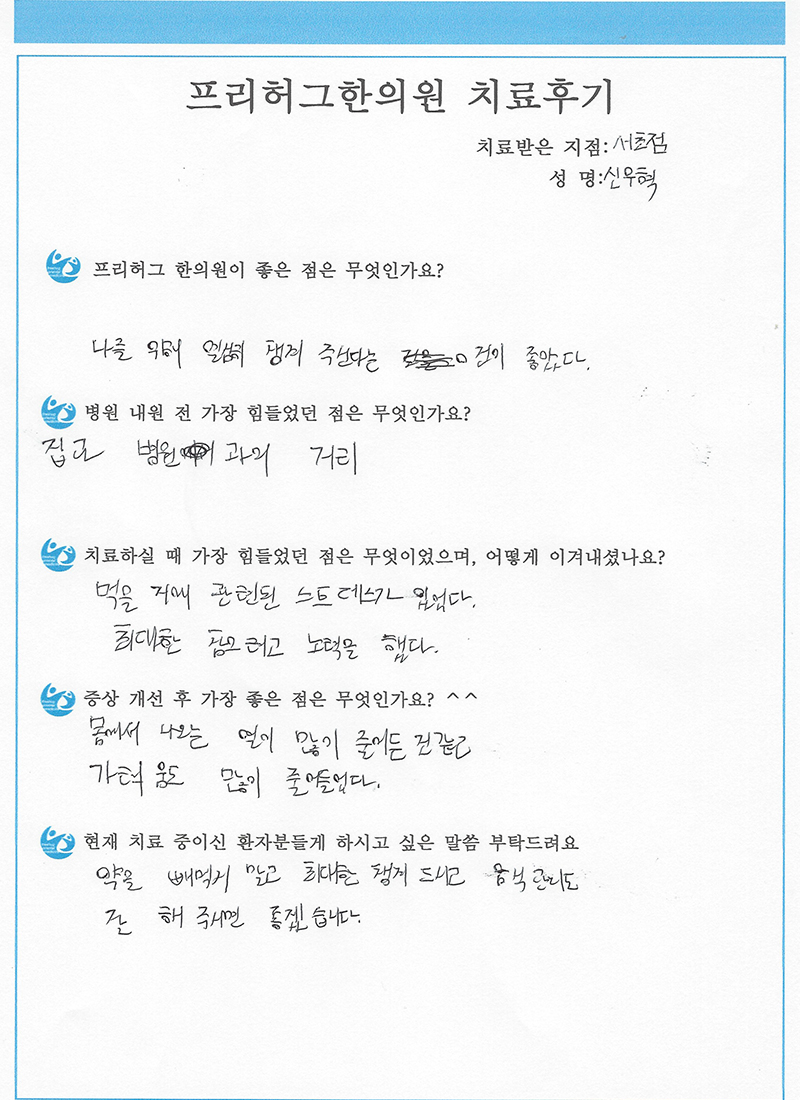 프리허그한의원 치료후기
치료받은 지점:서초점
성 명:신우혁
프리허그 한의원이 좋은 점은 무엇인가요?
나를 위해 열심히 챙겨 주신다는 건이 좋았다.
병원 내원 전 가장 힘들었던 점은 무엇인가요?
집과 병원 과의 거리
치료하실 때 가장 힘들었던 점은 무엇이었으며, 어떻게 이겨내셨나요?
먹을 거에 관련된 스트레스가 있었다.
최대한 참으려고 노력을 했다.
증상 개선 후 가장 좋은 점은 무엇인가요? ^^
몸에서 나오는 열이 많이 줄어든 건 같고
가려움도 많이 줄어들었다.
현재 치료 중이신 환자분들게 하시고 싶은 말씀 부탁드려요
약을 빼먹지 말고 최대한 챙겨 드시고 음식 관리도
잘 해 주시면 좋겠습니다.